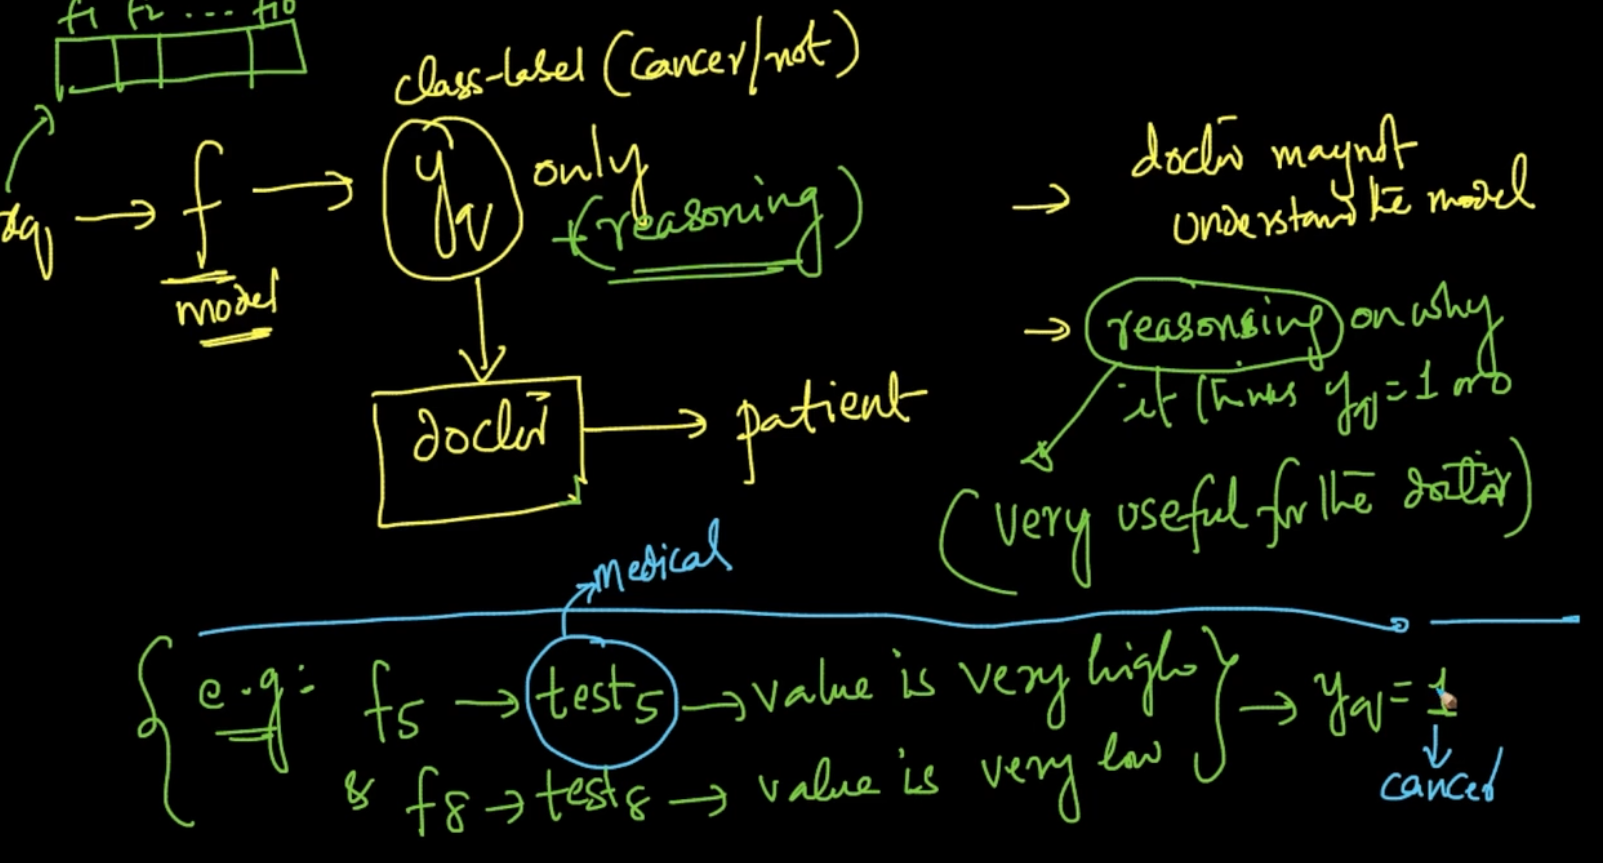 f1 f2 ... f10
class-label (cancer/not)
xq → f → yq only
+(reasoning)
model
doctor → patient
→ doctor maynot
understand the model
→ reasoning on why
it thinks yq = 1 or 0
(very useful for the doctor)
medical
e.g: f5 → test5 → value is very high
& f8 → test8 → value is very low
→ yq = 1
cancer